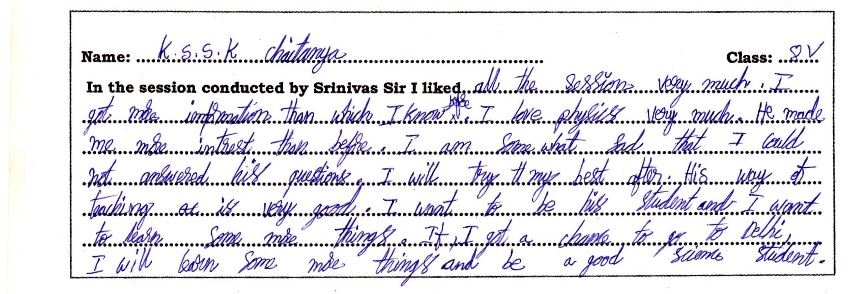 Name: K.S.S.K chaitanya Class: 8 V
In the session conducted by Srinivas Sir I liked all the session very much. I
got more information than which I know before. I love physics very much. He made
me more intrest than before. I am some what sad that I could
not answered his questions. I will try my best after. His way of
teaching is very good. I want to be his student and I want
to learn some more things. If, I got a chance to go to Delhi,
I will learn some more things and be a good science student.